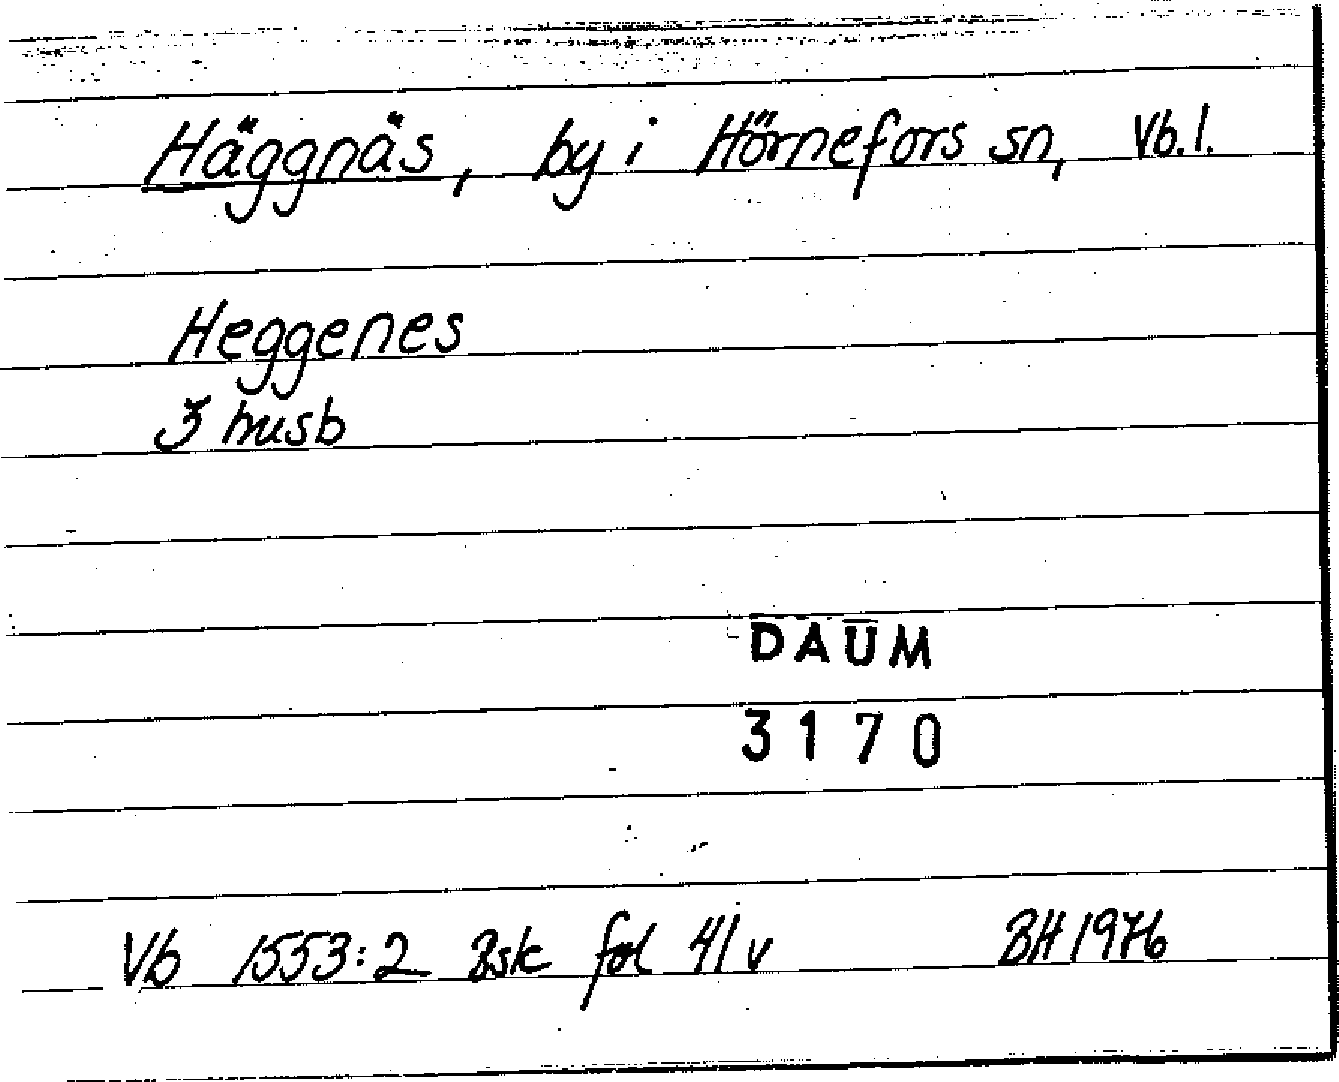 Häggnäs, by i Hörnefors sn, Vb.l.
Heggenes
3 husb
DAUM
3170
Vb 1553:2 Bsk fol 41 v BH 1976